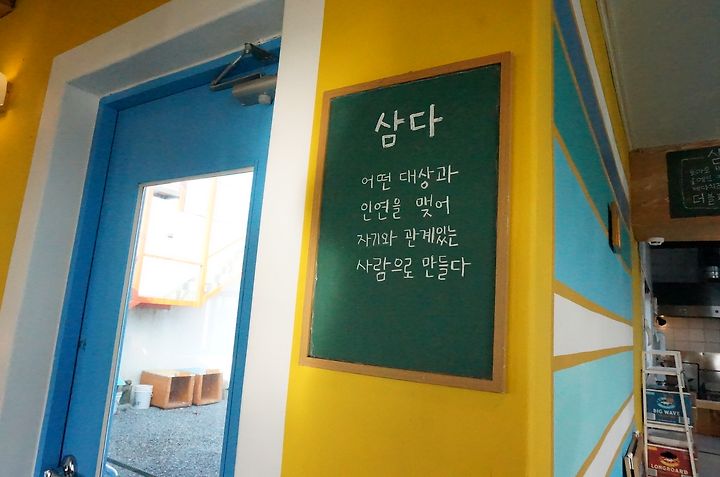 삼다
어떤 대상과
인연을 맺어
자기와 관계있는
사람으로 만들다
BIG WAVE
LONGBOARD